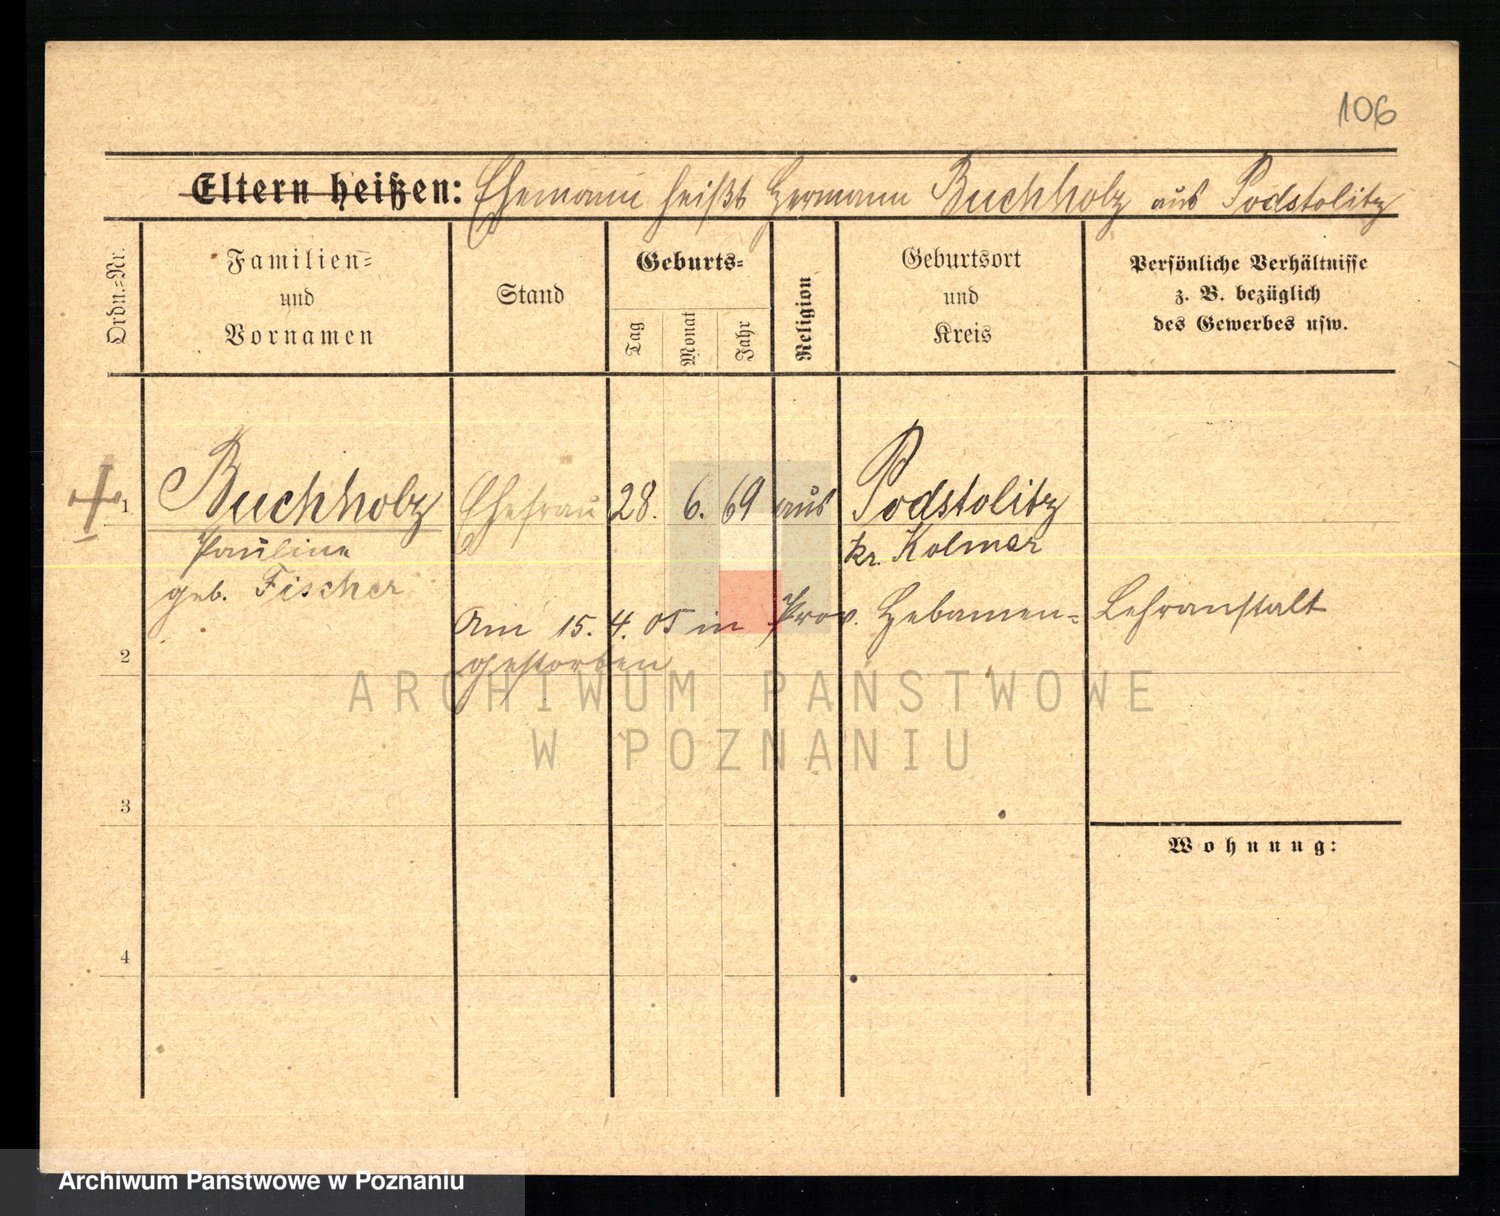 106
Eltern heißen: Ehemann heißt Hermann Buchholz aus Podstolitz
Ordn.-Nr.
Familien-
und
Vornamen
Stand
Geburts-
Tag
Monat
Jahr
Religion
Geburtsort
und
Kreis
Persönliche Verhältnisse
z. B. bezüglich
des Gewerbes usw.
1 Buchholz Ehefrau 28. 6. 69 aus Podstolitz
Pauline kr. Kolmar
geb. Fischer
Am 15. 4. 05 in Prov. Hebamen- Lehranstalt
2 gestorben
ARCHIWUM PAŃSTWOWE
W POZNANIU
3
Wohnung:
4
Archiwum Państwowe w Poznaniu